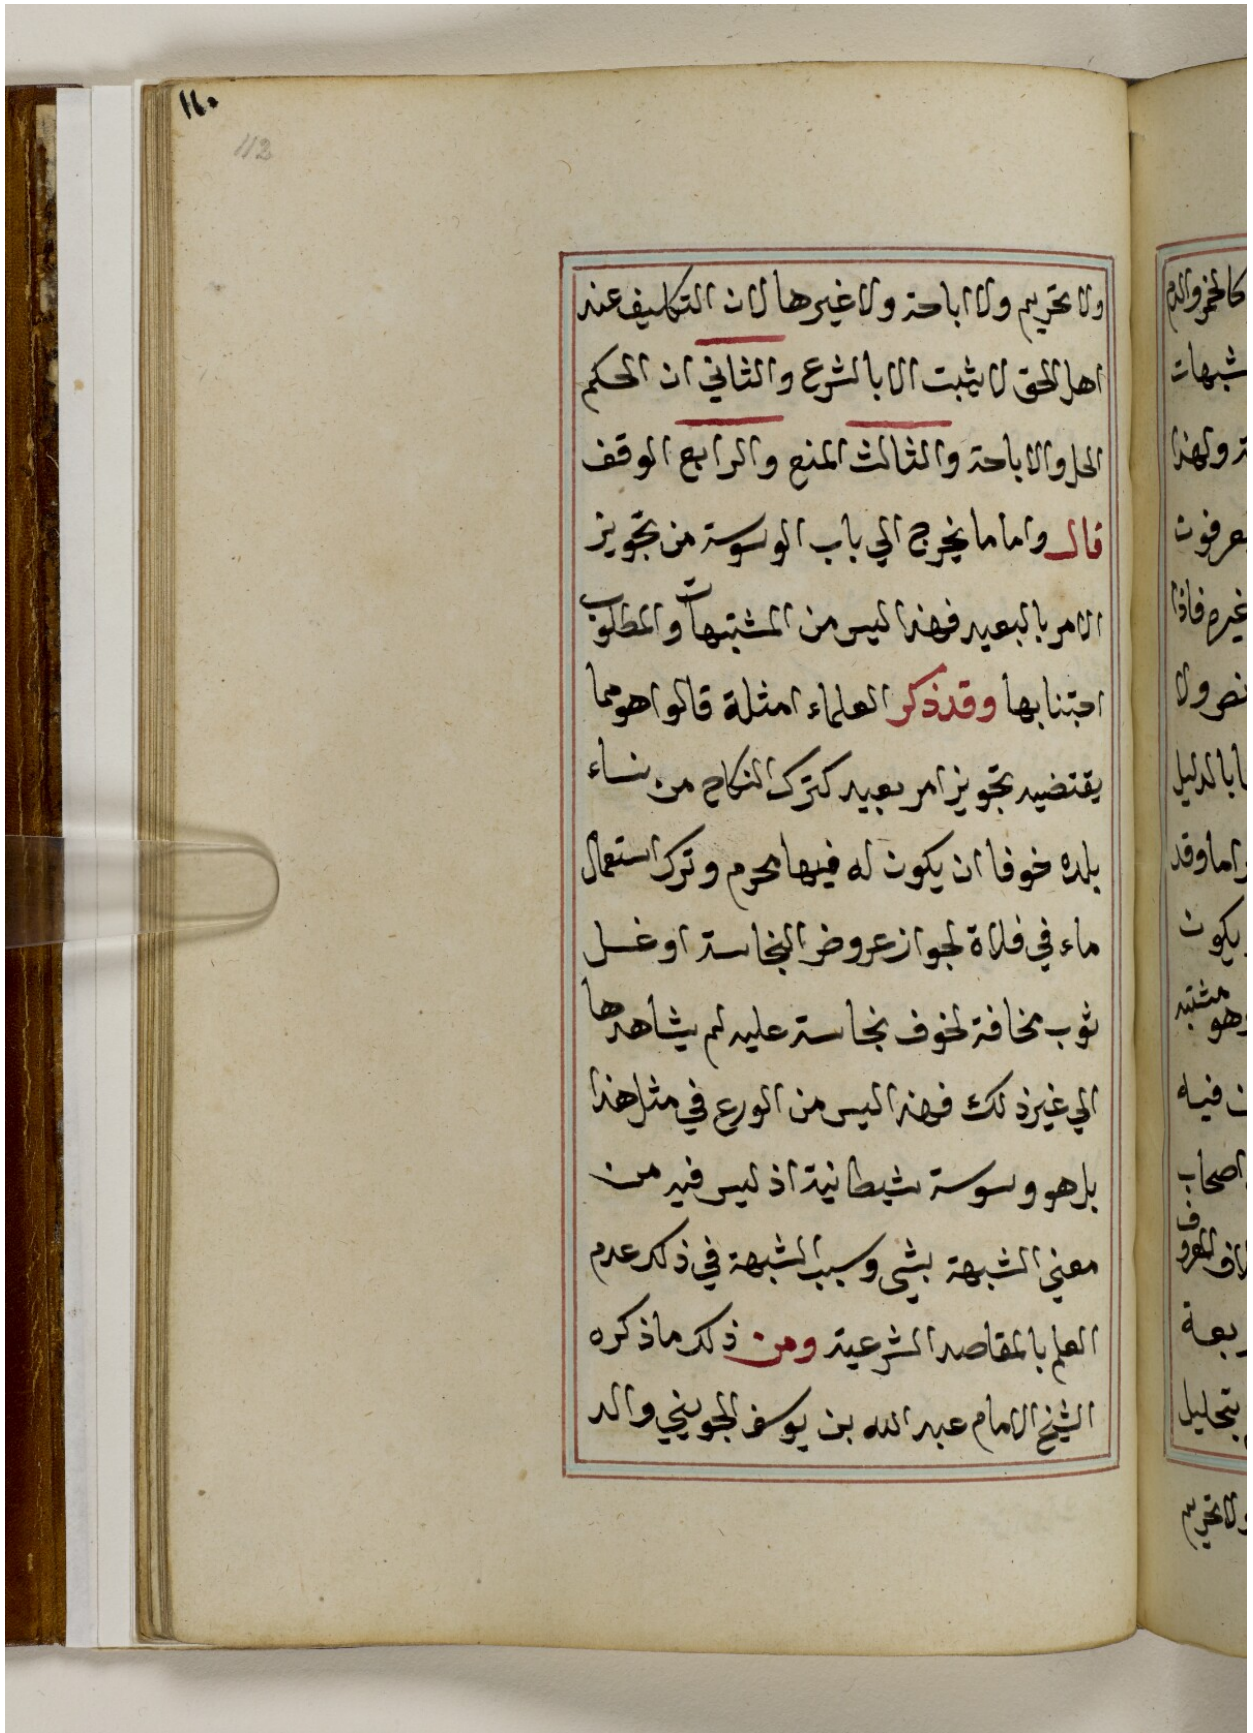 ١١٠
112
ولا تحريم ولا اباحة ولا غيرها لان التكليف عند
اهل الحق لا يثبت الا بالشرع والثاني ان الحكم
الحل والاباحة والثالث المنع والرابع الوقف
قال واما ما يخرج الي باب الوسوسة من تجويز
الامر بالبعيد فهذا ليس من المشتبهات والمطلوب
اجتنابها وقد ذكر العلماء امثلة قالوا هو مما
يقتضيه تجويز امر بعيد كترك النكاح من نساء
بلده خوفا ان يكون له فيها محرم وترك استعمال
ماء في فلاة لجواز عروض النجاسة او غسل
ثوب مخافة لخوف نجاسة عليه لم يشاهدها
الي غير ذلك فهذا ليس من الورع في مثل هذا
بل هو وسوسة شيطانية اذ ليس فيه من
معني الشبهة بشي وسبب الشبهة في ذلك عدم
العلم بالمقاصد الشرعية ومن ذلك ما ذكره
الشيخ الامام عبد الله بن يوسف الجويني والد
كالخمر والدم
شبهات
ولهذا
غيره فاذا
نص ولا
بالدليل
واما وقد
يكون
وهو مشتبه
فيه
اصحاب
المعروف
بتحليل
ولا تحريم